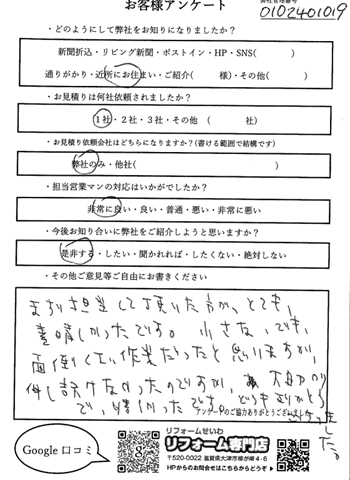 お客様アンケート
弊社管理番号
0102401019
・どのようにして弊社をお知りになりましたか？
新聞折込・リビング新聞・ポストイン・HP・SNS(　　　)
通りがかり・近所にお住まい・ご紹介(　　様)・その他(　　　)
・お見積りは何社依頼されましたか？
1社・2社・3社・その他 (　　　社)
・お見積り依頼会社はどちらになりますか？(書ける範囲で結構です)
弊社のみ・他社(　　　)
・担当営業マンの対応はいかがでしたか？
非常に良い・良い・普通・悪い・非常に悪い
・今後お知り合いに弊社をご紹介しようと思いますか？
是非する・したい・聞かれれば・したくない・絶対しない
・その他ご意見等ご自由にお書きください
まず担当して頂いた方が、とても、
素晴しかったです。小さな、でも、
面倒くさい作業だったと思いますが、
申し訳けなかったのですが、
で、嬉しかったです。どうもありがとう
ございました。
アンケートのご協力ありがとうございました
Google 口コミ
リフォームせいわ
リフォーム専門店
〒520-0022 滋賀県大津市柳が崎4-6
HPからのお問合せはこちらからどうぞ